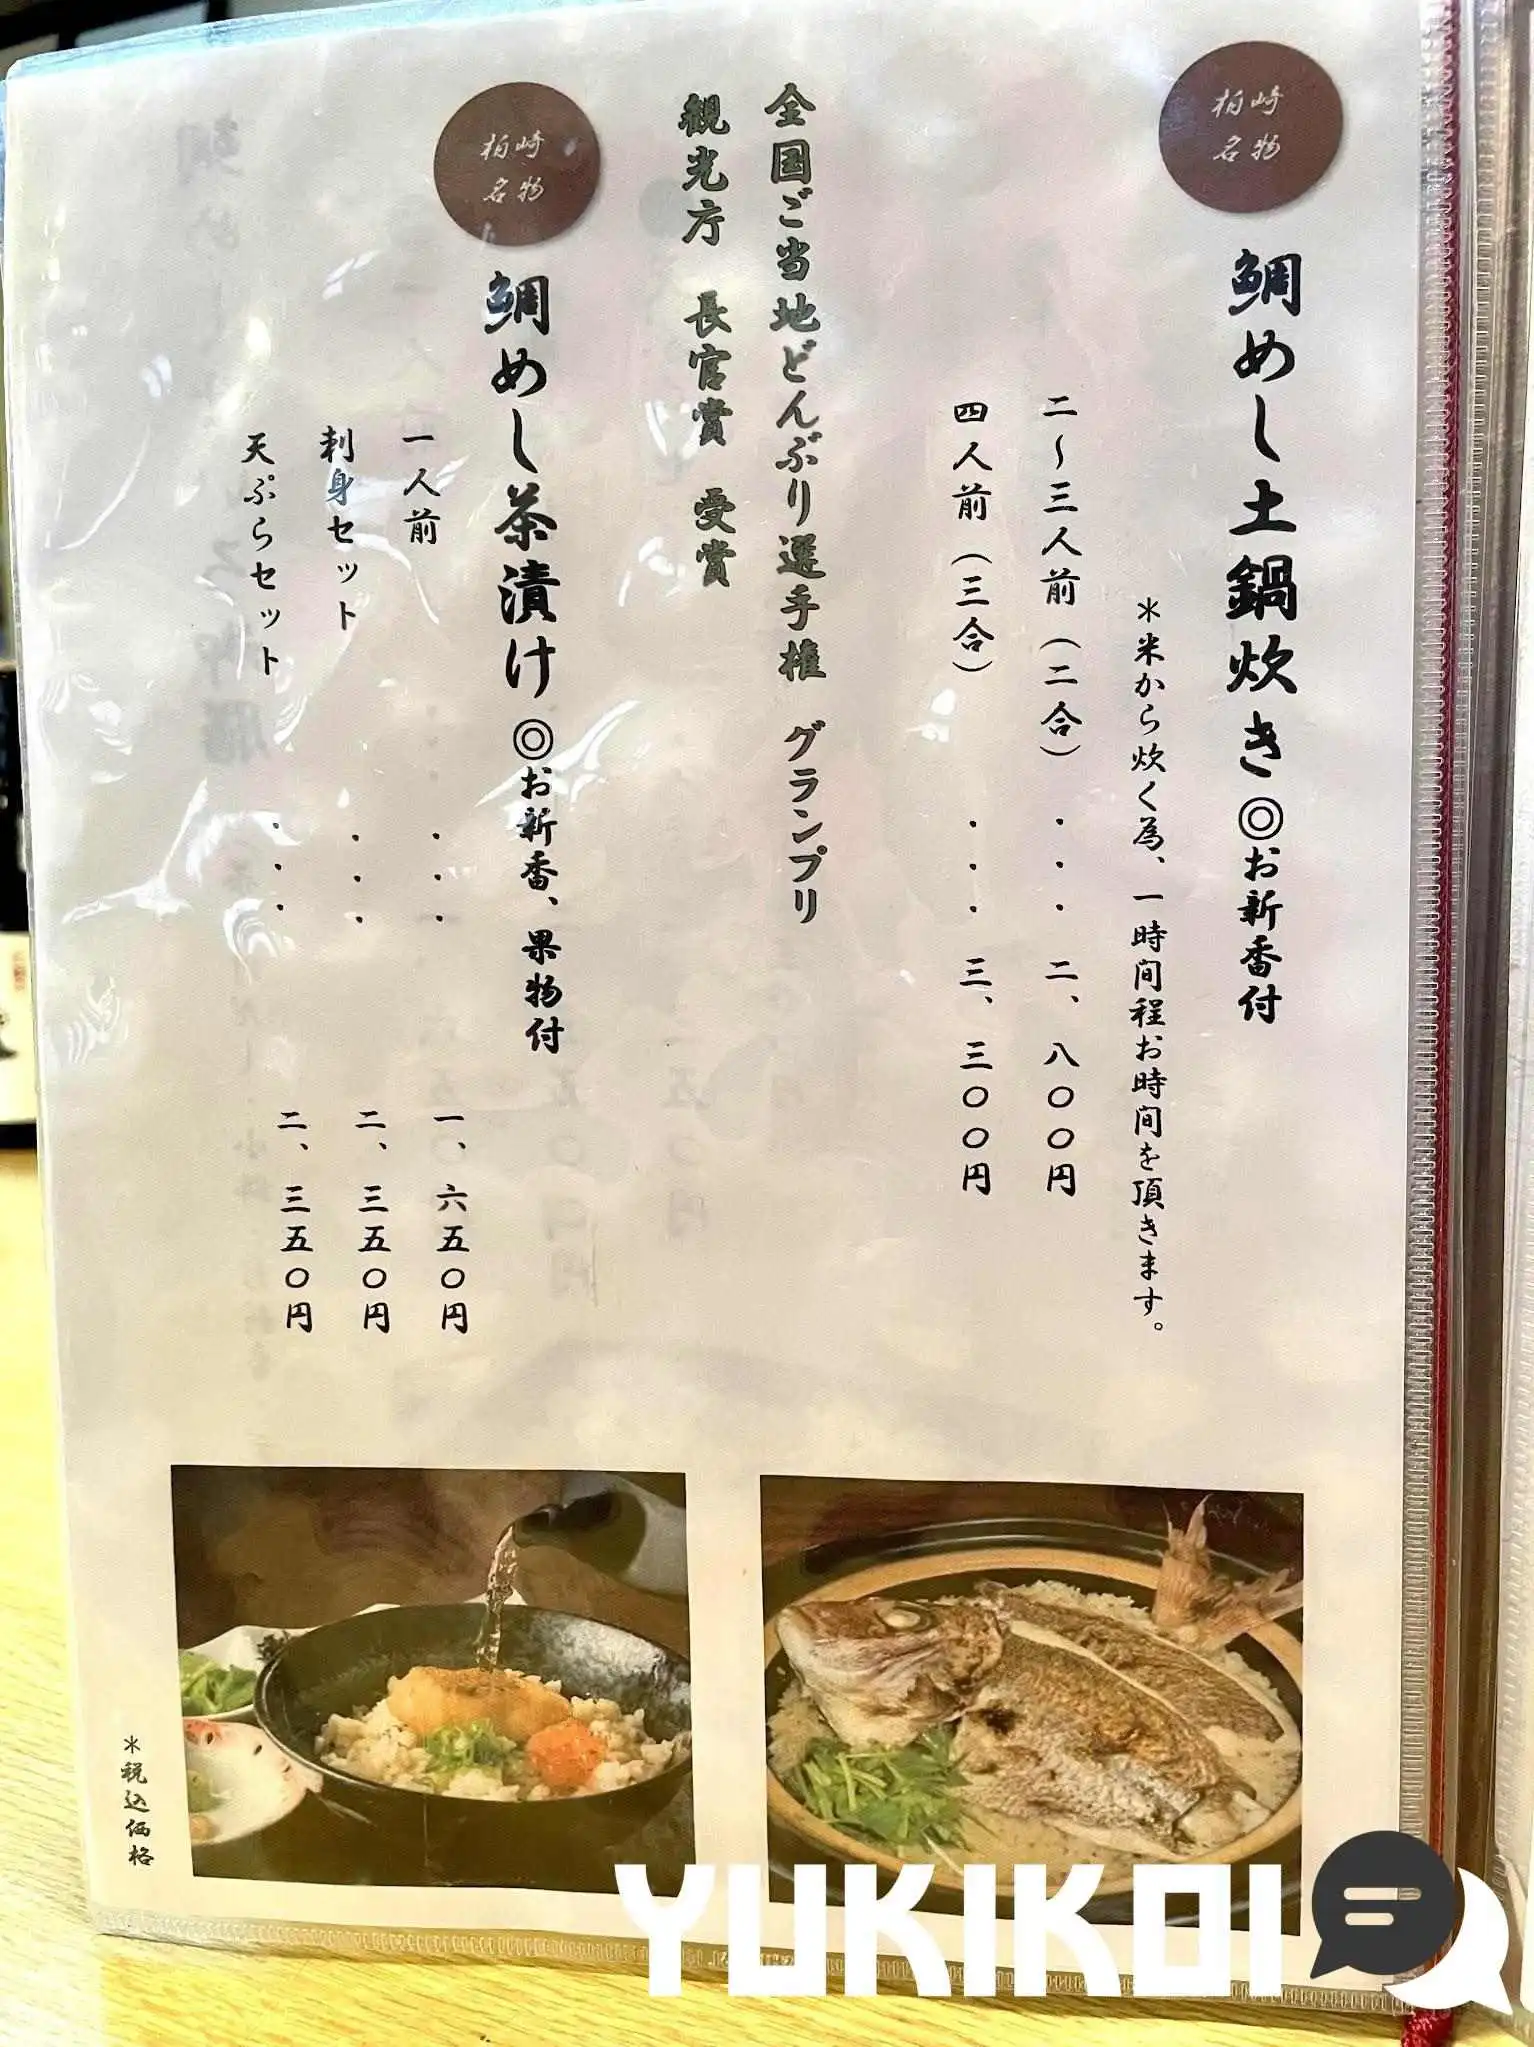 柏崎
名物
鯛めし土鍋炊き◎お新香付
＊米から炊く為、一時間程お時間を頂きます。
二～三人前（二合）・・・二、八〇〇円
四人前（三合）・・・三、三〇〇円
全国ご当地どんぶり選手権 グランプリ
観光庁 長官賞 受賞
柏崎
名物
鯛めし茶漬け◎お新香、果物付
一人前・・・一、六五〇円
刺身セット・・・二、三五〇円
天ぷらセット・・・二、三五〇円
＊税込価格
YUKIKOI